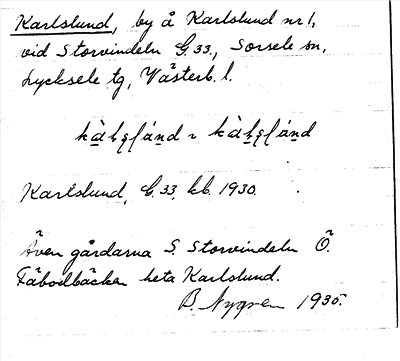 Karlslund, by å Karlslund nr 1,
vid Storvindeln G.33, Sorsele sn,
Lycksele tg, Västerb. l.
Karlslund, G.33, kb. 1930.
Även gårdarna S. Storvindeln Ö.
Fäbodbäcken heta Karlslund.
B. Nygren 1935.